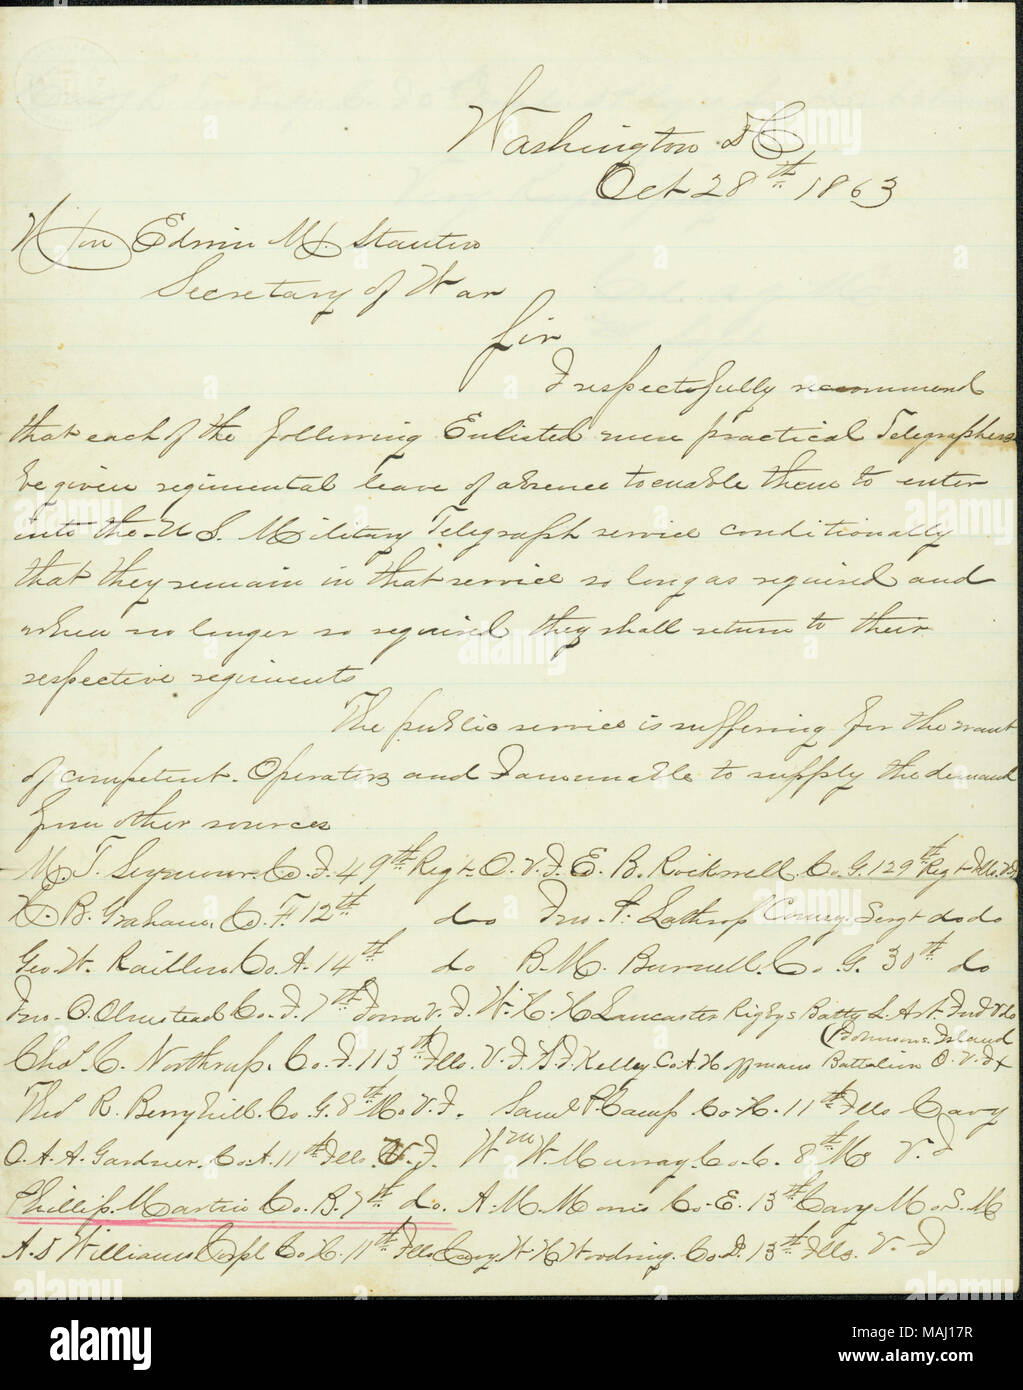 Washington D C
Oct 28th 1863
Hon Edwin M. Stanton
Secretary of War
Sir
I respectfully recommend
that each of the following Enlisted men practical Telegraphers
be given regimental leave of absence to enable them to enter
into the U S. Military Telegraph service conditionally
that they remain in that service so long as required and
when no longer so required they shall return to their
respective regiments
The public service is suffering for the want
of competent Operators and I am unable to supply the demand
from other sources
M. T. Seymour. Co. I. 49th Regt. O. V. I. E. B. Rockwell. Co. G. 129th Regt Ills. V.
H. B. Graham. Co. F. 12th do Jno. F. Lathrop Comsy. Sergt do do
Geo. W. Co. A. 14th do B. M. Burnell. Co. G. 30th do
Jno. O. Olmstead Co. I. 7th Iowa V. I. W. H. H. Lancaster Rigbys Batty L. Art. Ind Vols
(Johnsons Island
Chas. C. Northrup. Co. I. 113th Ills. V. I. Kelley. Co. A Hoffmans Battalion O. V. I
Thos R. Berryhill. Co. G. 8th Mo V. I. Saml P. Camp Co. H. 11th Ills Cavy
O. A. A. Gardner. Co. A. 11th Ills. V. I. Wm W. Murray. Co. C. 8th Mo V. I
Phillip. Martin Co. B. 7th do. A. M. Morris Co. E. 13th Cavy Mo. S. M
A. S Williams Corpl Co. H. 11th Ills Cavy W H Woodring. Co. D. 13th Ills. V. I
alamy
alamy
Image ID: MAJ17R
www.alamy.com